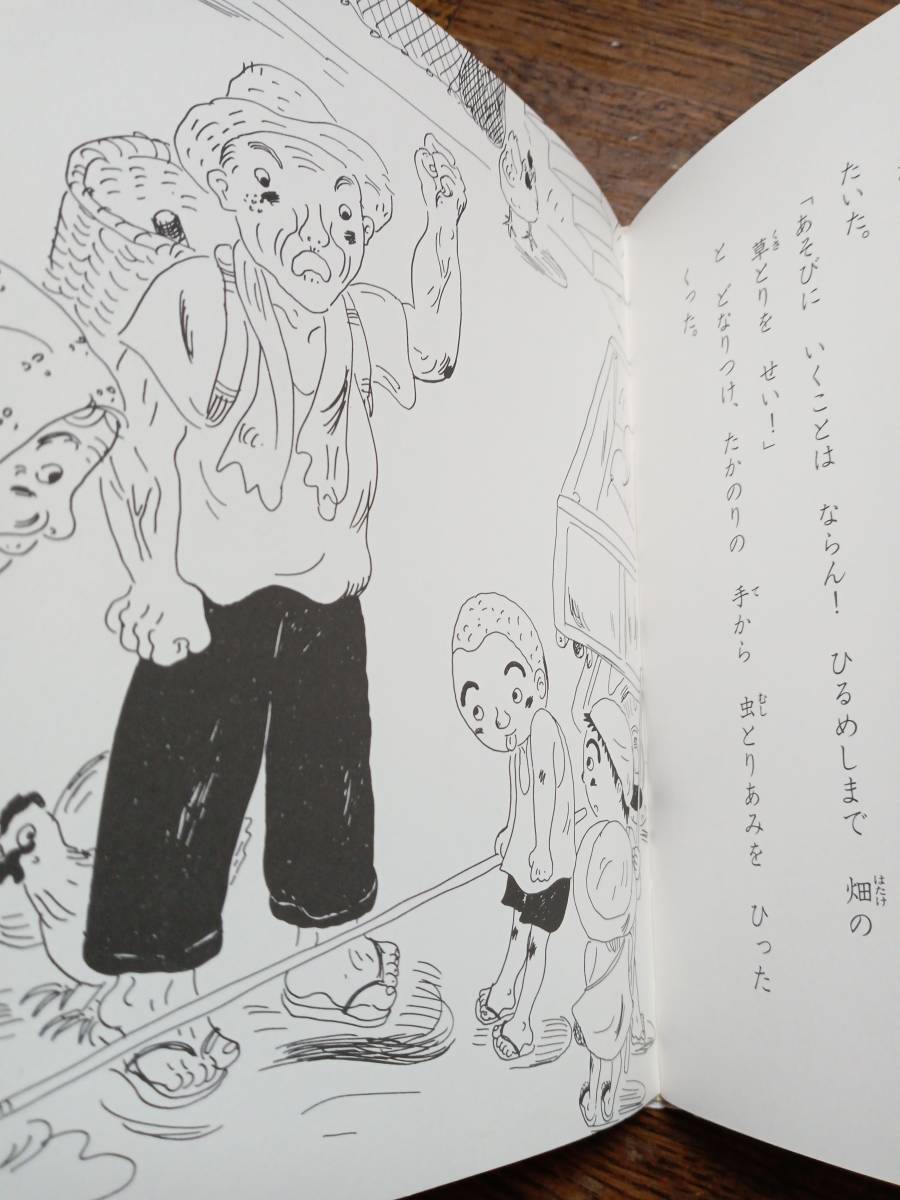 たいた。
「あそびに いくことは ならん! ひるめしまで 畑の
草とりを せい!」
と どなりつけ、たかのりの 手から 虫とりあみを ひった
くった。